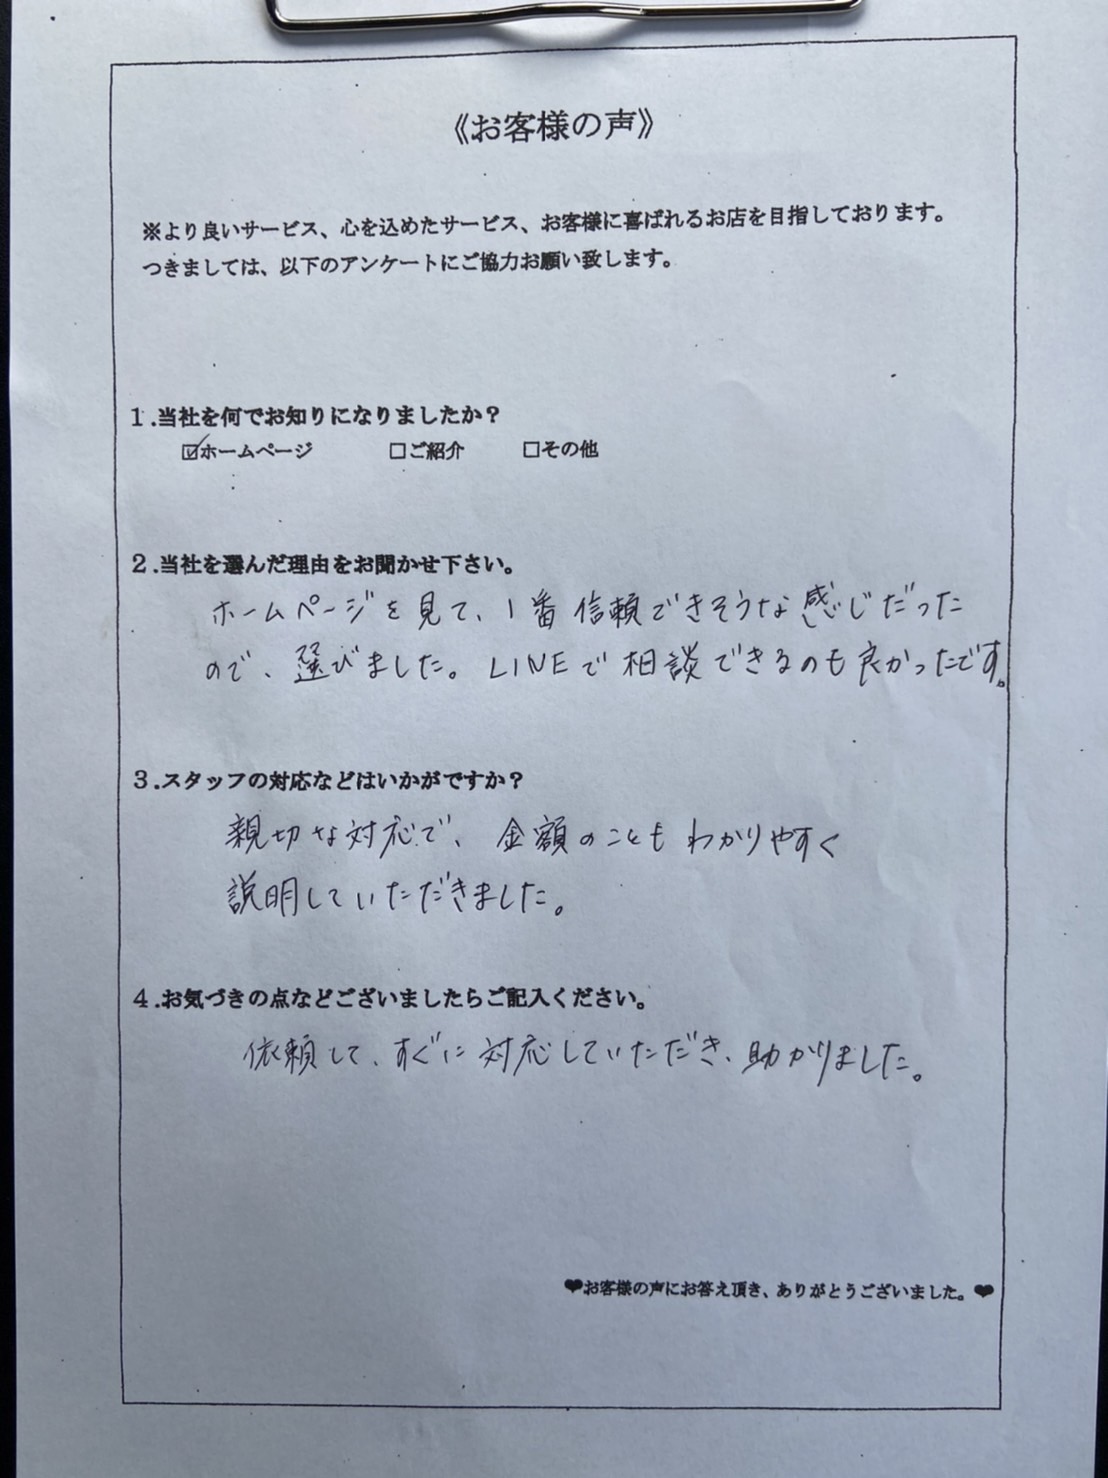 《お客様の声》
※より良いサービス、心を込めたサービス、お客様に喜ばれるお店を目指しております。
つきましては、以下のアンケートにご協力お願い致します。
１.当社を何でお知りになりましたか？
☑ホームページ　□ご紹介　□その他
２.当社を選んだ理由をお聞かせ下さい。
ホームページを見て、1番信頼できそうな感じだった
ので、選びました。LINEで相談できるのも良かったです。
３.スタッフの対応などはいかがですか？
親切な対応で、金額のこともわかりやすく
説明していただきました。
４.お気づきの点などございましたらご記入ください。
依頼して、すぐに対応していただき、助かりました。
❤お客様の声にお答え頂き、ありがとうございました。❤